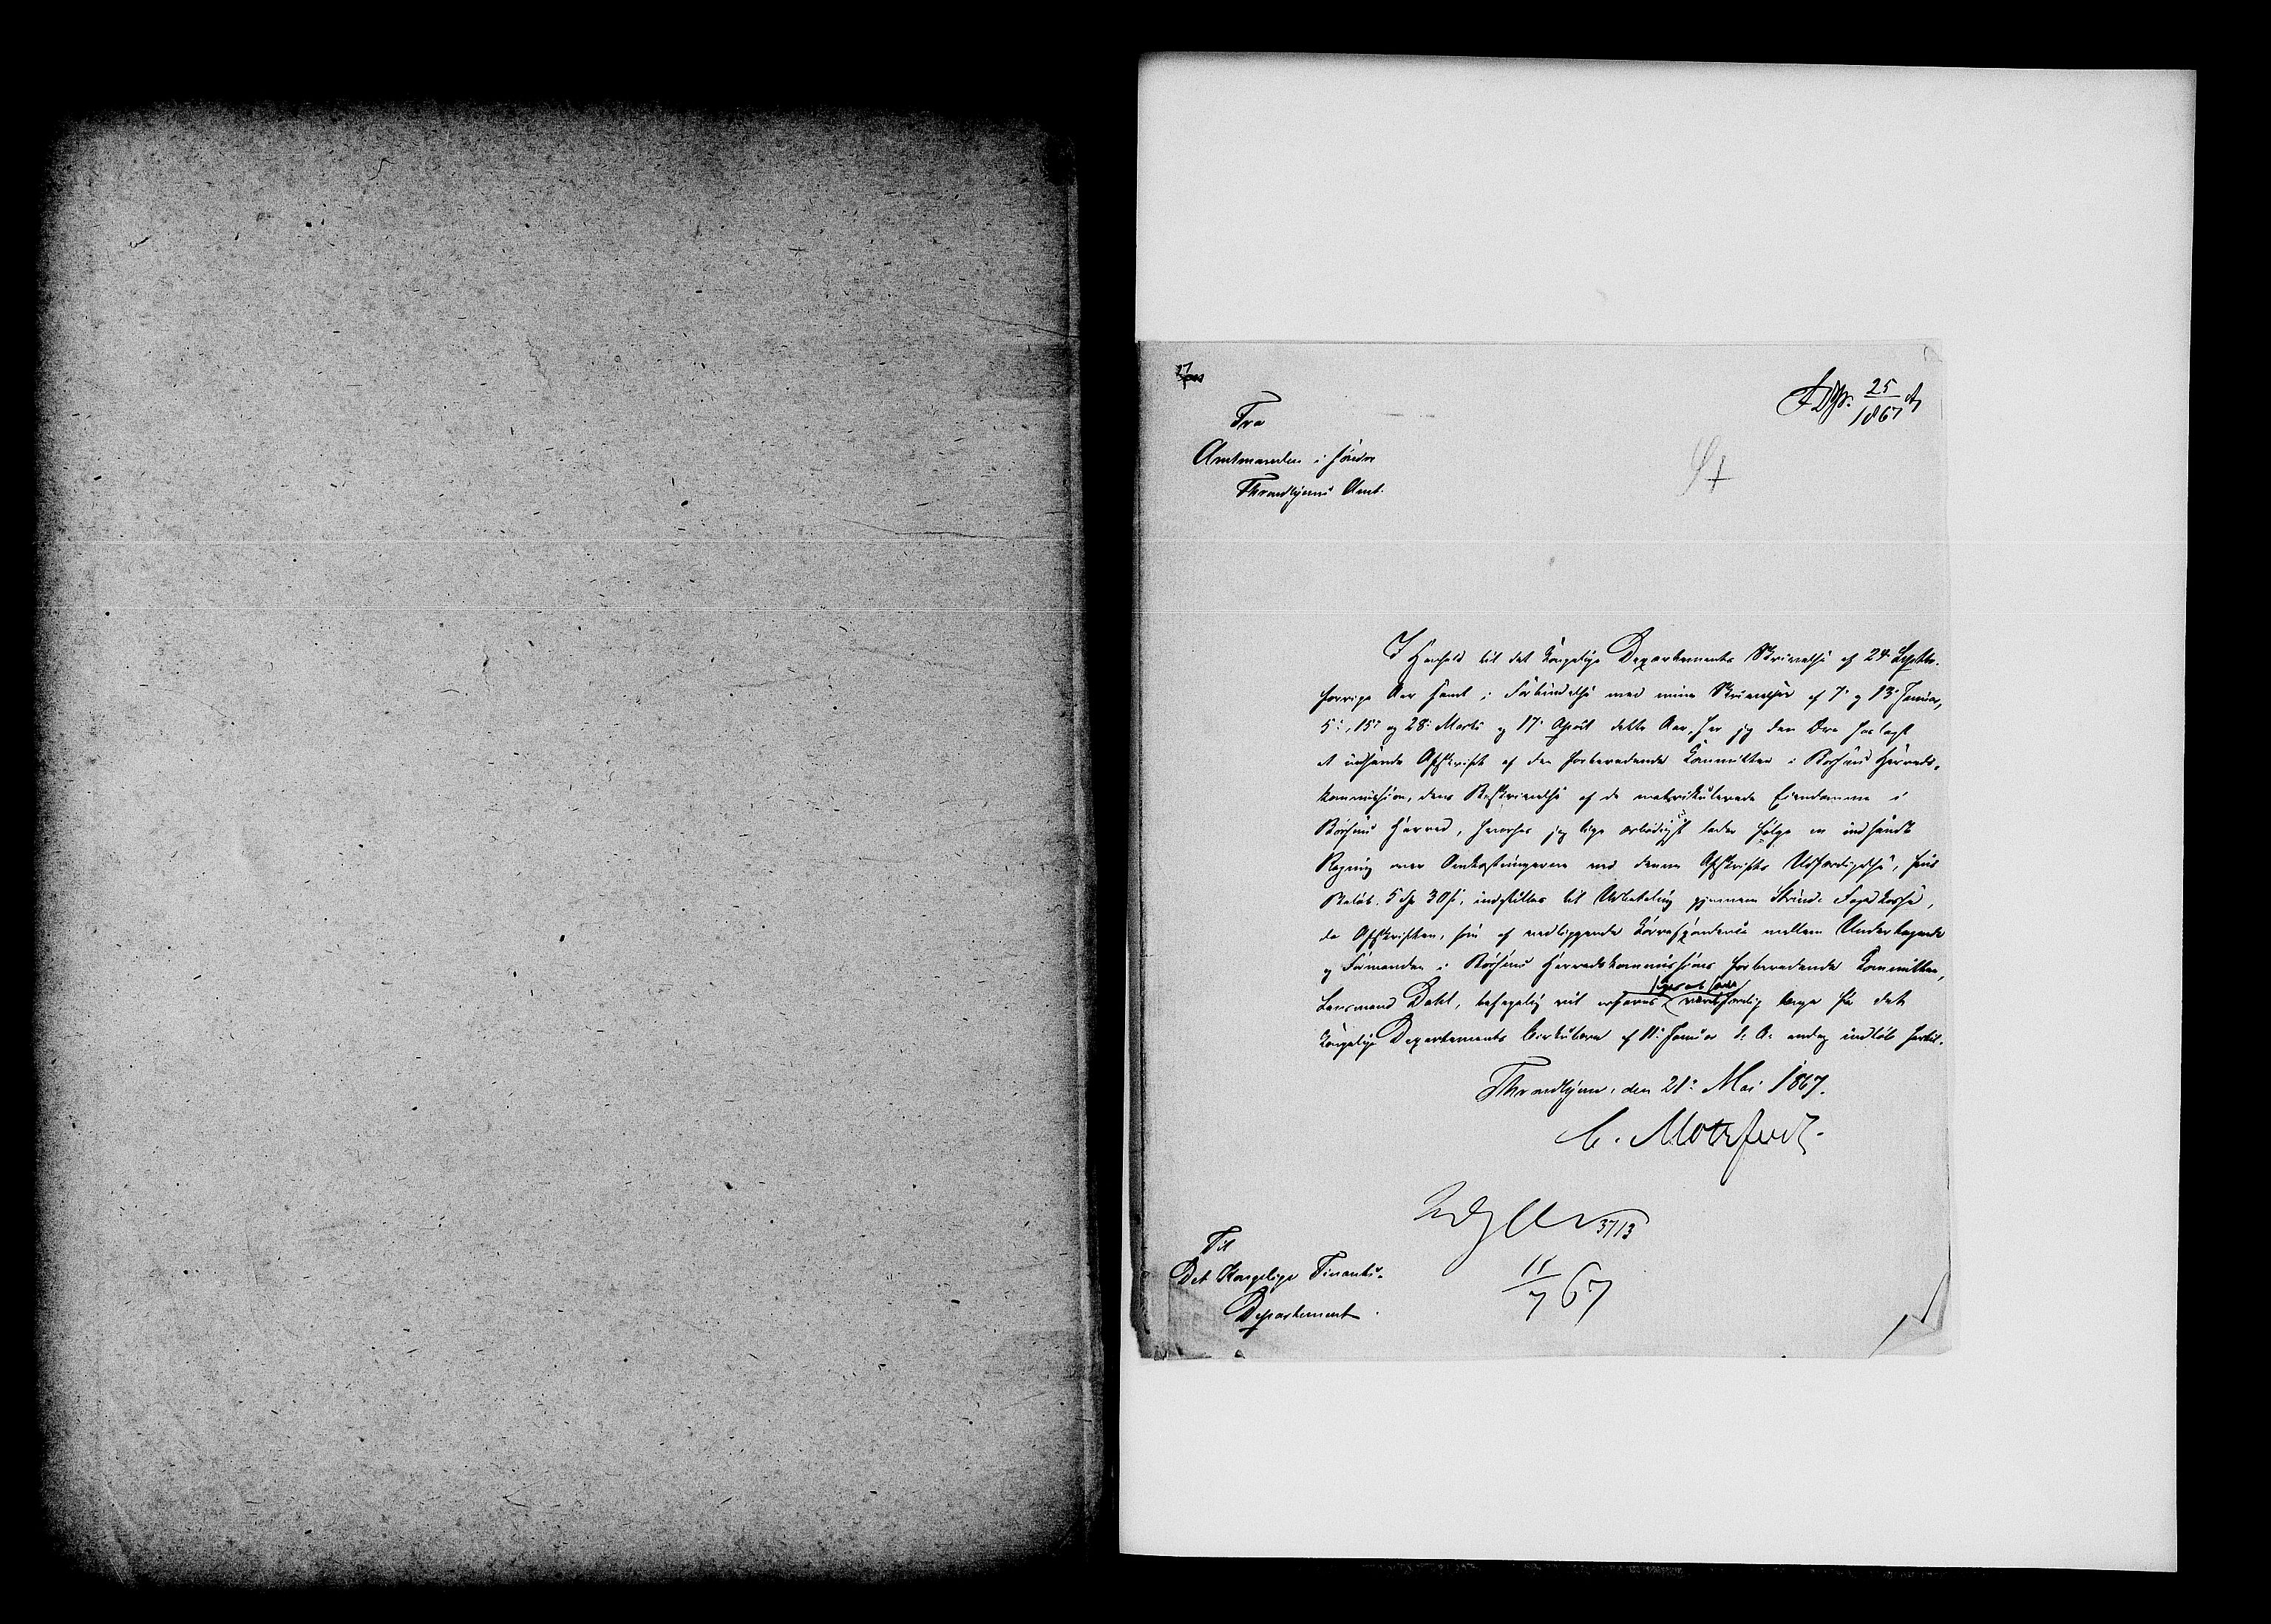 25
1867
Fra
Amtmanden i søndre
Throndhjems Amt.
I Henhold til det kongelige Departements Skrivelse af 24 Septbr.
forrige Aar samt i Forbindelse med mine Skrivelser af 7. og 13. Januar,
5:, 15: og 28: Marts og 17. April dette Aar, har jeg den Ære herlagt
at indsende Afskrift af den forberedende Kommitee i Børsens Herreds-
kommission, dens Beskrivelse af de matrikulerede Eiendomme i
Børsens Herred, hvorhos jeg lige ærbødigst lader følge en indsendt
Regning over Omkostningerne ved denne Afskrifts Udfærdigelse, hvis
Beløb, 5 Spd 30 s, indstilles til Udbetaling gjennem Strinde Fogedkasse,
da Afskriften, som af vedliggende Korrespondence mellem Undertegnede
og Formanden i Børsens Herredskommissions forberedende Kommitee,
Lensmand Dahl, behagelig vil erfares færdig længe før det
kongelige Departements Cirkulære af 11: Januar d. A. endog indløb hertil.
Throndhjem, den 21: Mai 1867.
C. Motzfeldt.
3713
11/7 67
Til
Det Kongelige Finants-
Departement.